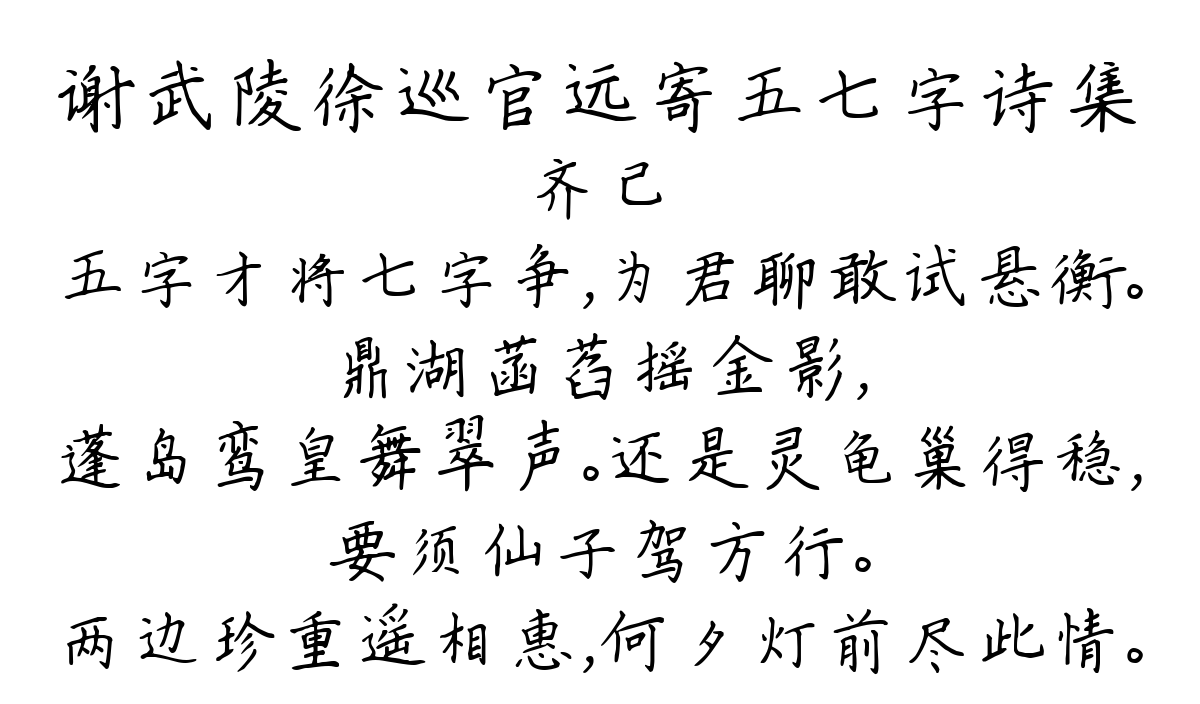 谢武陵徐巡官远寄五七字诗集
齐己
五字才将七字争,为君聊敢试悬衡。
鼎湖菡萏摇金影,
蓬岛鸾皇舞翠声。还是灵龟巢得稳,
要须仙子驾方行。
两边珍重遥相惠,何夕灯前尽此情。